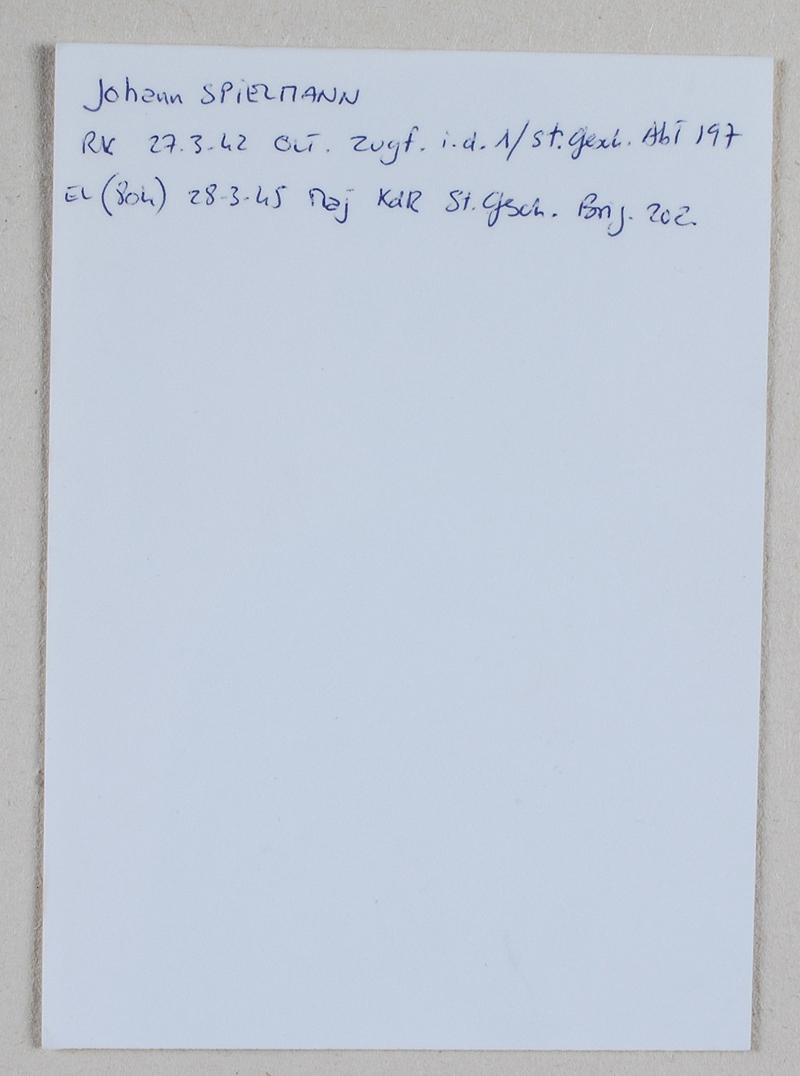 Johann SPIELMANN
RK 27.3.42 OLT. Zugf. i.d. 1/St.Gesch. Abt 197
EL (804) 28-3-45 Maj KdR St.Gesch. Brig. 202.